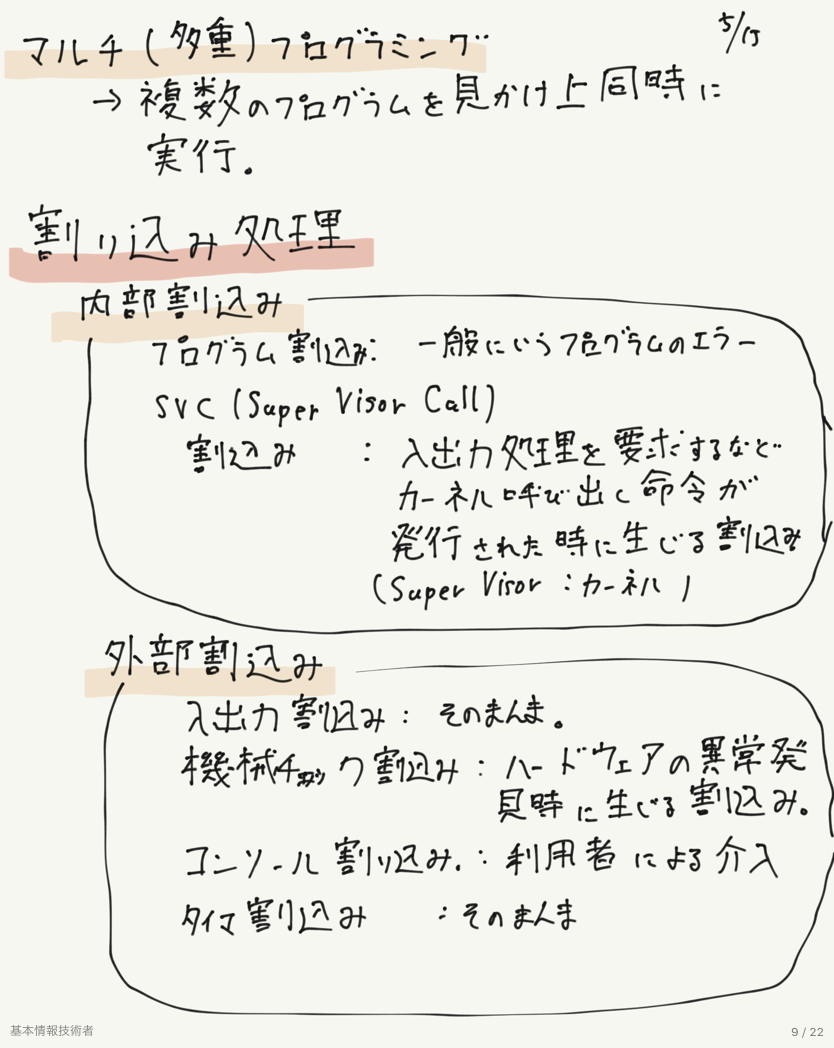 5/15
マルチ(多重)プログラミング
→ 複数のプログラムを見かけ上同時に
実行.
割り込み処理
内部割込み
プログラム割込み: 一般にいうプログラムのエラー
SVC (Super Visor Call)
割り込み : 入出力処理を要求するなど
カーネル呼び出し命令が
発行された時に生じる割り込み
(Super Visor : カーネル)
外部割込み
入出力割り込み: そのまんま。
機械チェック割込み: ハードウェアの異常発
見時に生じる割り込み。
コンソール割り込み.: 利用者による介入
タイマ割り込み : そのまんま
基本情報技術者
9 / 22